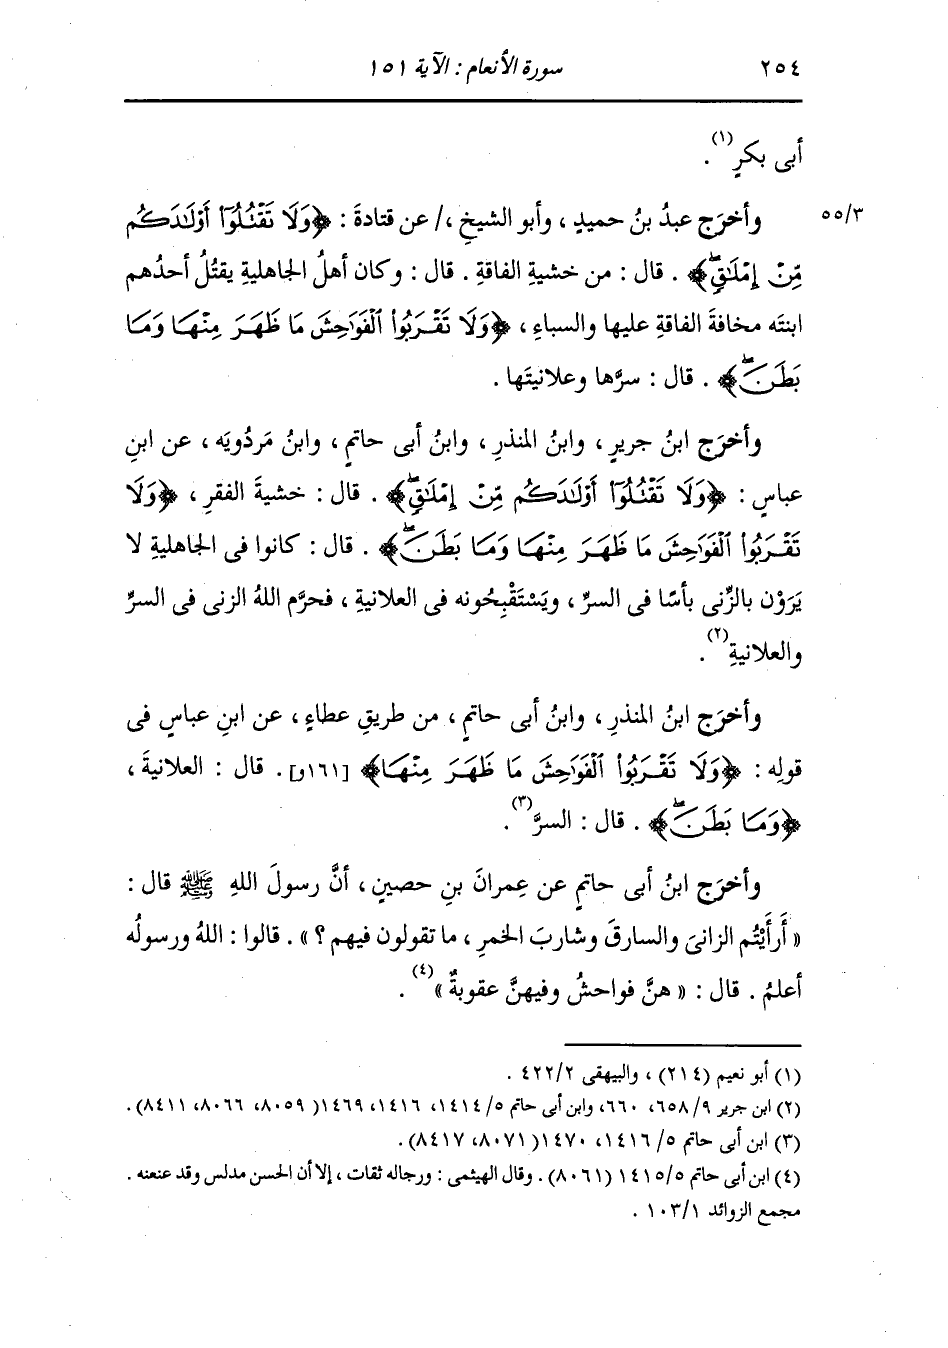 ٢٥٤ سورة الأنعام : الآية ١٥١
أبى بكرٍ(١).
٥٥/٣ وأخرَج عبدُ بنُ حميدٍ ، وأبو الشيخِ ،/ عن قتادةَ : ﴿وَلَا تَقْتُلُوٓا۟ أَوْلَٰدَكُم
مِّنْ إِمْلَٰقٍۖ﴾ . قال : من خشيةِ الفاقةِ . قال : وكان أهلُ الجاهليةِ يقتُلُ أحدُهم
ابنتَه مخافةَ الفاقةِ عليها والسباءِ ، ﴿وَلَا تَقْرَبُوا۟ ٱلْفَوَٰحِشَ مَا ظَهَرَ مِنْهَا وَمَا
بَطَنَۖ﴾ . قال : سرَّها وعلانيتَها .
وأخرَج ابنُ جريرٍ ، وابنُ المنذرِ ، وابنُ أبى حاتمٍ ، وابنُ مَردُويَه ، عن ابنِ
عباسٍ : ﴿وَلَا تَقْتُلُوٓا۟ أَوْلَٰدَكُم مِّنْ إِمْلَٰقٍۖ﴾ . قال : خشيةَ الفقرِ ، ﴿وَلَا
تَقْرَبُوا۟ ٱلْفَوَٰحِشَ مَا ظَهَرَ مِنْهَا وَمَا بَطَنَۖ﴾ . قال : كانوا فى الجاهليةِ لا
يَرَوْن بالزِّنى بأسًا فى السرِّ ، ويَسْتَقْبِحُونه فى العلانيةِ ، فحرَّم اللهُ الزنى فى السرِّ
والعلانيةِ(٢).
وأخرَج ابنُ المنذرِ ، وابنُ أبى حاتمٍ ، من طريقِ عطاءٍ ، عن ابنِ عباسٍ فى
قولِه : ﴿وَلَا تَقْرَبُوا۟ ٱلْفَوَٰحِشَ مَا ظَهَرَ مِنْهَا﴾ [١٦١و]. قال : العلانيةَ ،
﴿وَمَا بَطَنَۖ﴾ . قال : السرَّ(٣).
وأخرَج ابنُ أبى حاتمٍ عن عِمرانَ بنِ حصينٍ ، أنَّ رسولَ اللهِ ﷺ قال :
« أَرأَيْتُم الزانىَ والسارقَ وشاربَ الخمرِ ، ما تقولون فيهم ؟ » . قالوا : اللهُ ورسولُه
أعلمُ . قال : « هنَّ فواحشُ وفيهنَّ عقوبةٌ »(٤) .
(١) أبو نعيم (٢١٤) ، والبيهقى ٤٢٢/٢ .
(٢) ابن جرير ٩/ ٦٥٨، ٦٦٠، وابن أبى حاتم ٥/ ١٤١٤، ١٤١٦، ١٤٦٩( ٨٠٥٩، ٨٠٦٦، ٨٤١١).
(٣) ابن أبى حاتم ٥/ ١٤١٦، ١٤٧٠( ٨٠٧١، ٨٤١٧).
(٤) ابن أبى حاتم ١٤١٥/٥ (٨٠٦١) . وقال الهيثمى : ورجاله ثقات ، إلا أن الحسن مدلس وقد عنعنه .
مجمع الزوائد ١٠٣/١ .